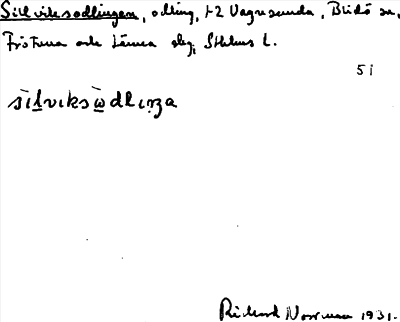 Sillviksodlingen, odling, t2 Vagnsunda, Blidö sn,
Frötuna och Länna skg, Sthlms l.
51
sìlviksὼdlinza
Rickard Norrman 1931.